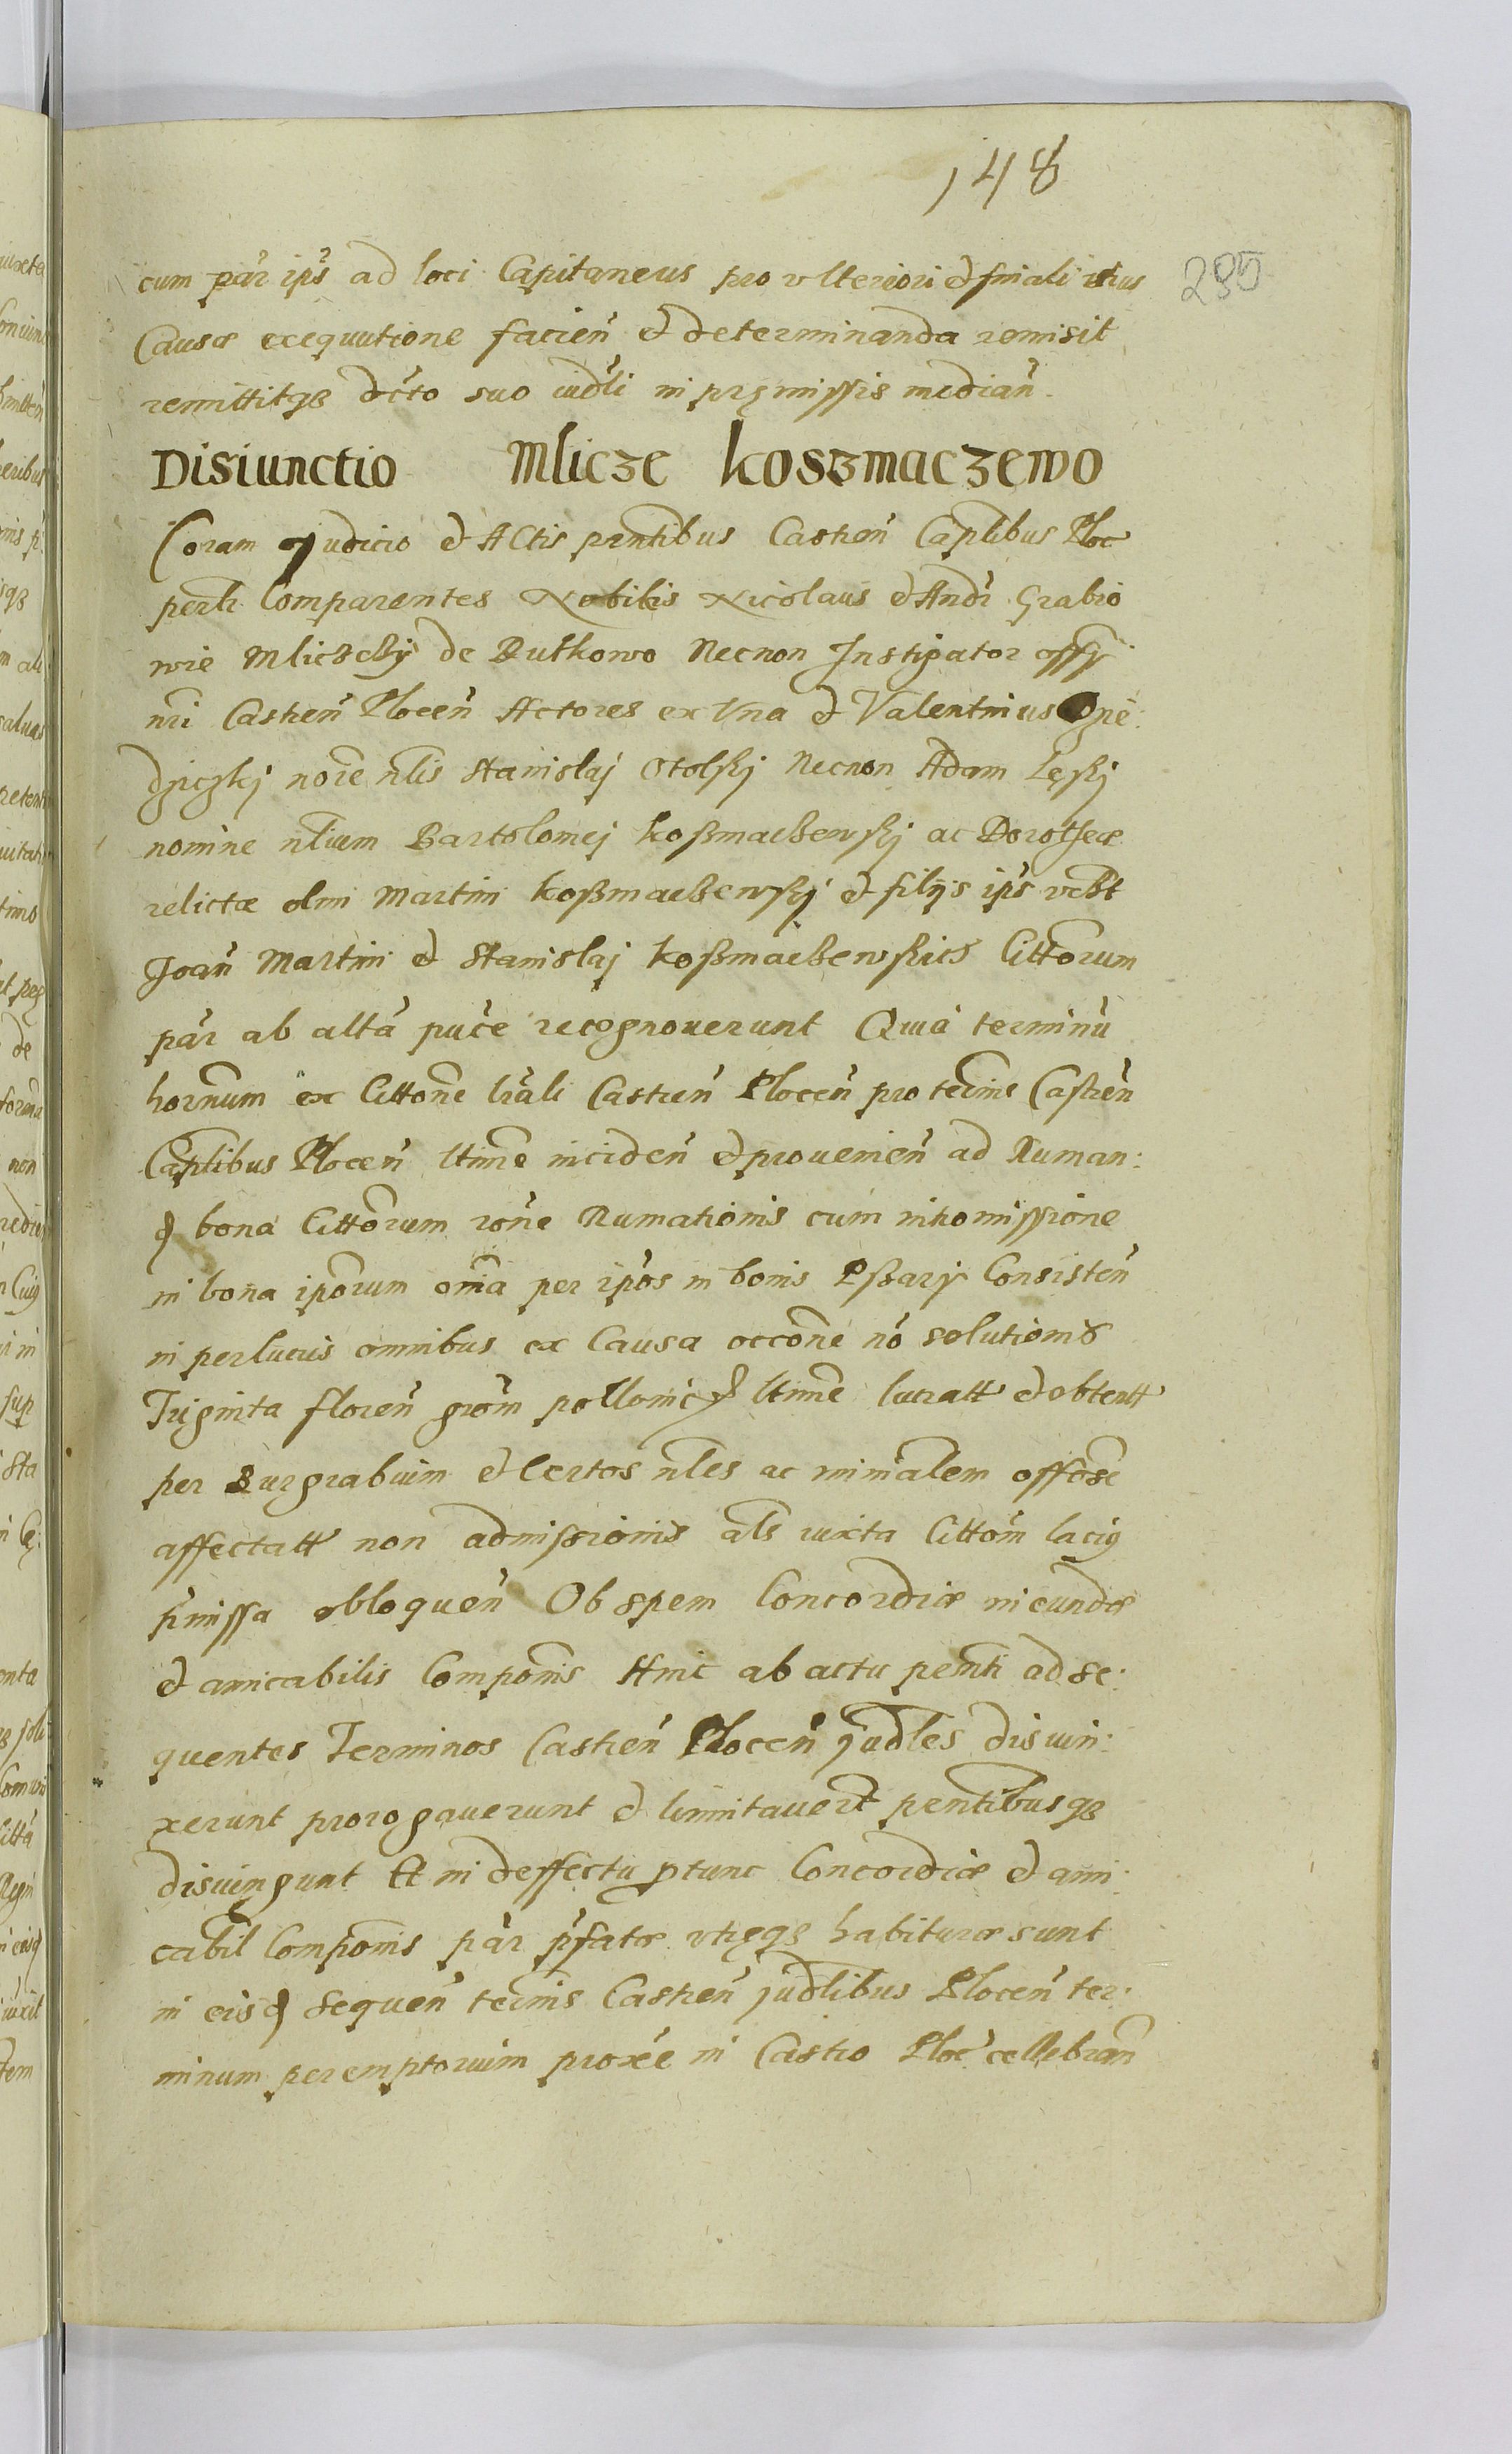 148
285
cum pár ip̃s ad loci Capitaneus pro vlteriori et finali
Causæ exequutione facień et determinanda remisit
remittitqз dcto suo iudłi in pręmissis mediań.
Disiunctio Mlicze Koszmaczewo
Coram Judicio et Actis prntibus Castreń Caplibus Ploc
perlr Comparentes Nobiles Nicolaus et Andr Grabio
wie Mliczsky de Rutkowo Necnon Instigator offy
nri Castreń Ploceń Actores ex Vna et Valentinus
dziczkj nore nlis Stanislaj Otolskj Necnon Adam Łęskj
nomine nlium Bartolomej Koßmaczewskj ac Dorotheæ
relictæ olim Martini Koßmaczewskj et filijs ip̃s vcbt
Joań Martini et Stanislaj Koßmaczewskies Cittorum
pár ab altá puce recognoverunt Quia terminu
hornum ex Cittone lrali Castreń Ploceń pro termis Castreń
Caplibus Ploceń ltime incideń et provenień ad Ruman:
bona Cittorum rone Rumationis cum intromissione
in bona iporum omia per ipos in bonis Pßary Consisteń
in perlucris omnibus ex Causa occone no solutionis
Triginta floreń grom pollonic ltime lucratt et obtentt
per Burgrabium et Certos nles ac minralem offose
affectatt non admissionis als iuxta Cittom lacig
pmissa obloqueń Ob spem Concordiæ ineundæ
et amicabilis Componis Hinc ab actu penti ad se:
quentes Terminos Castreń Ploceń judles disiun:
xerunt prorogaverunt et limitavert pentibusqз
disiungunt Et in deffectu ptunc Concordiæ et ami:
cabil Componis pár pfatæ vtręqз habituræ sunt
in eisd sequeń termis Castreń judlibus Ploceń ter:
minum peremptorium proxe in Castro Ploc cellebrań